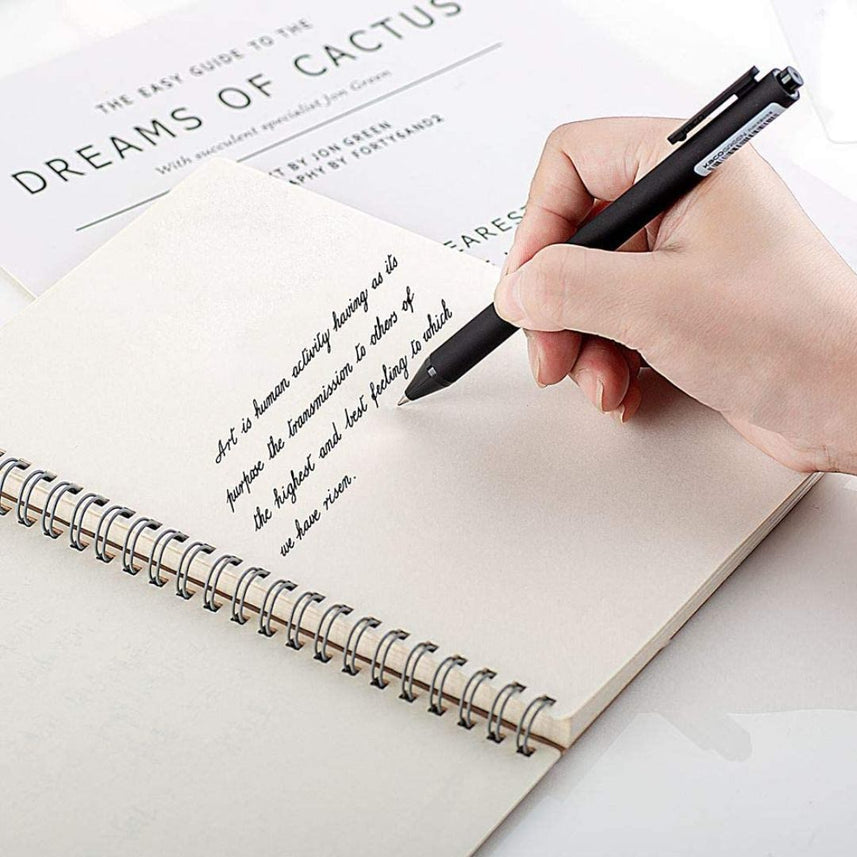 THE EASY GUIDE TO THE
DREAMS OF CACTUS
With succulent specialist Jon Green
BY JON GREEN
BY FORTY6AND2
Art is human activity having as its
purpose the transmission to others of
the highest and best feeling to which
we have risen.
KACOGREEN